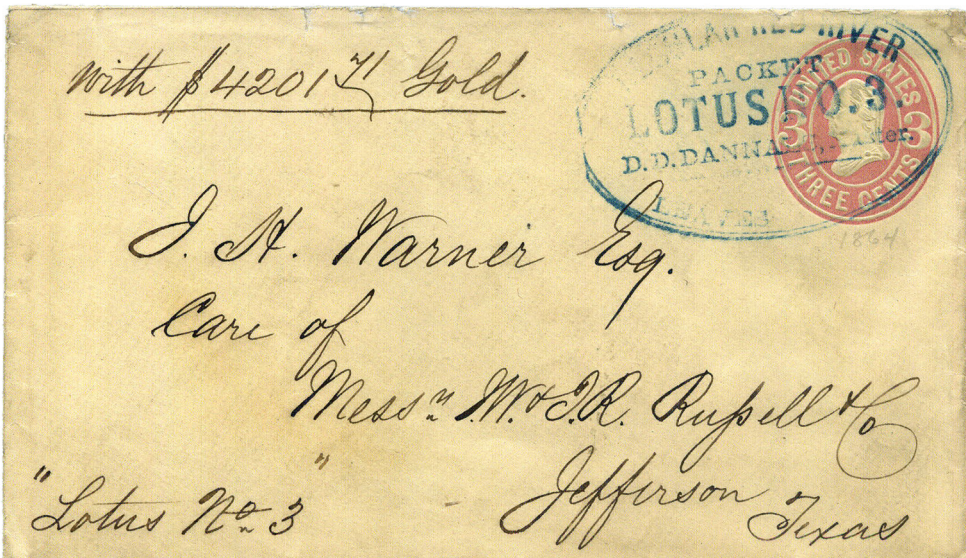 with $4201 71/ Gold.
RED RIVER
PACKET
LOTUS NO. 3.
D.D. DANNALS, Master.
LEAVES
UNITED STATES
3 3
THREE CENTS
1864
J. H. Warner Esq.
Care of
Messrs. W. & J.R. Russell & Co
Jefferson
Texas
"Lotus No. 3"